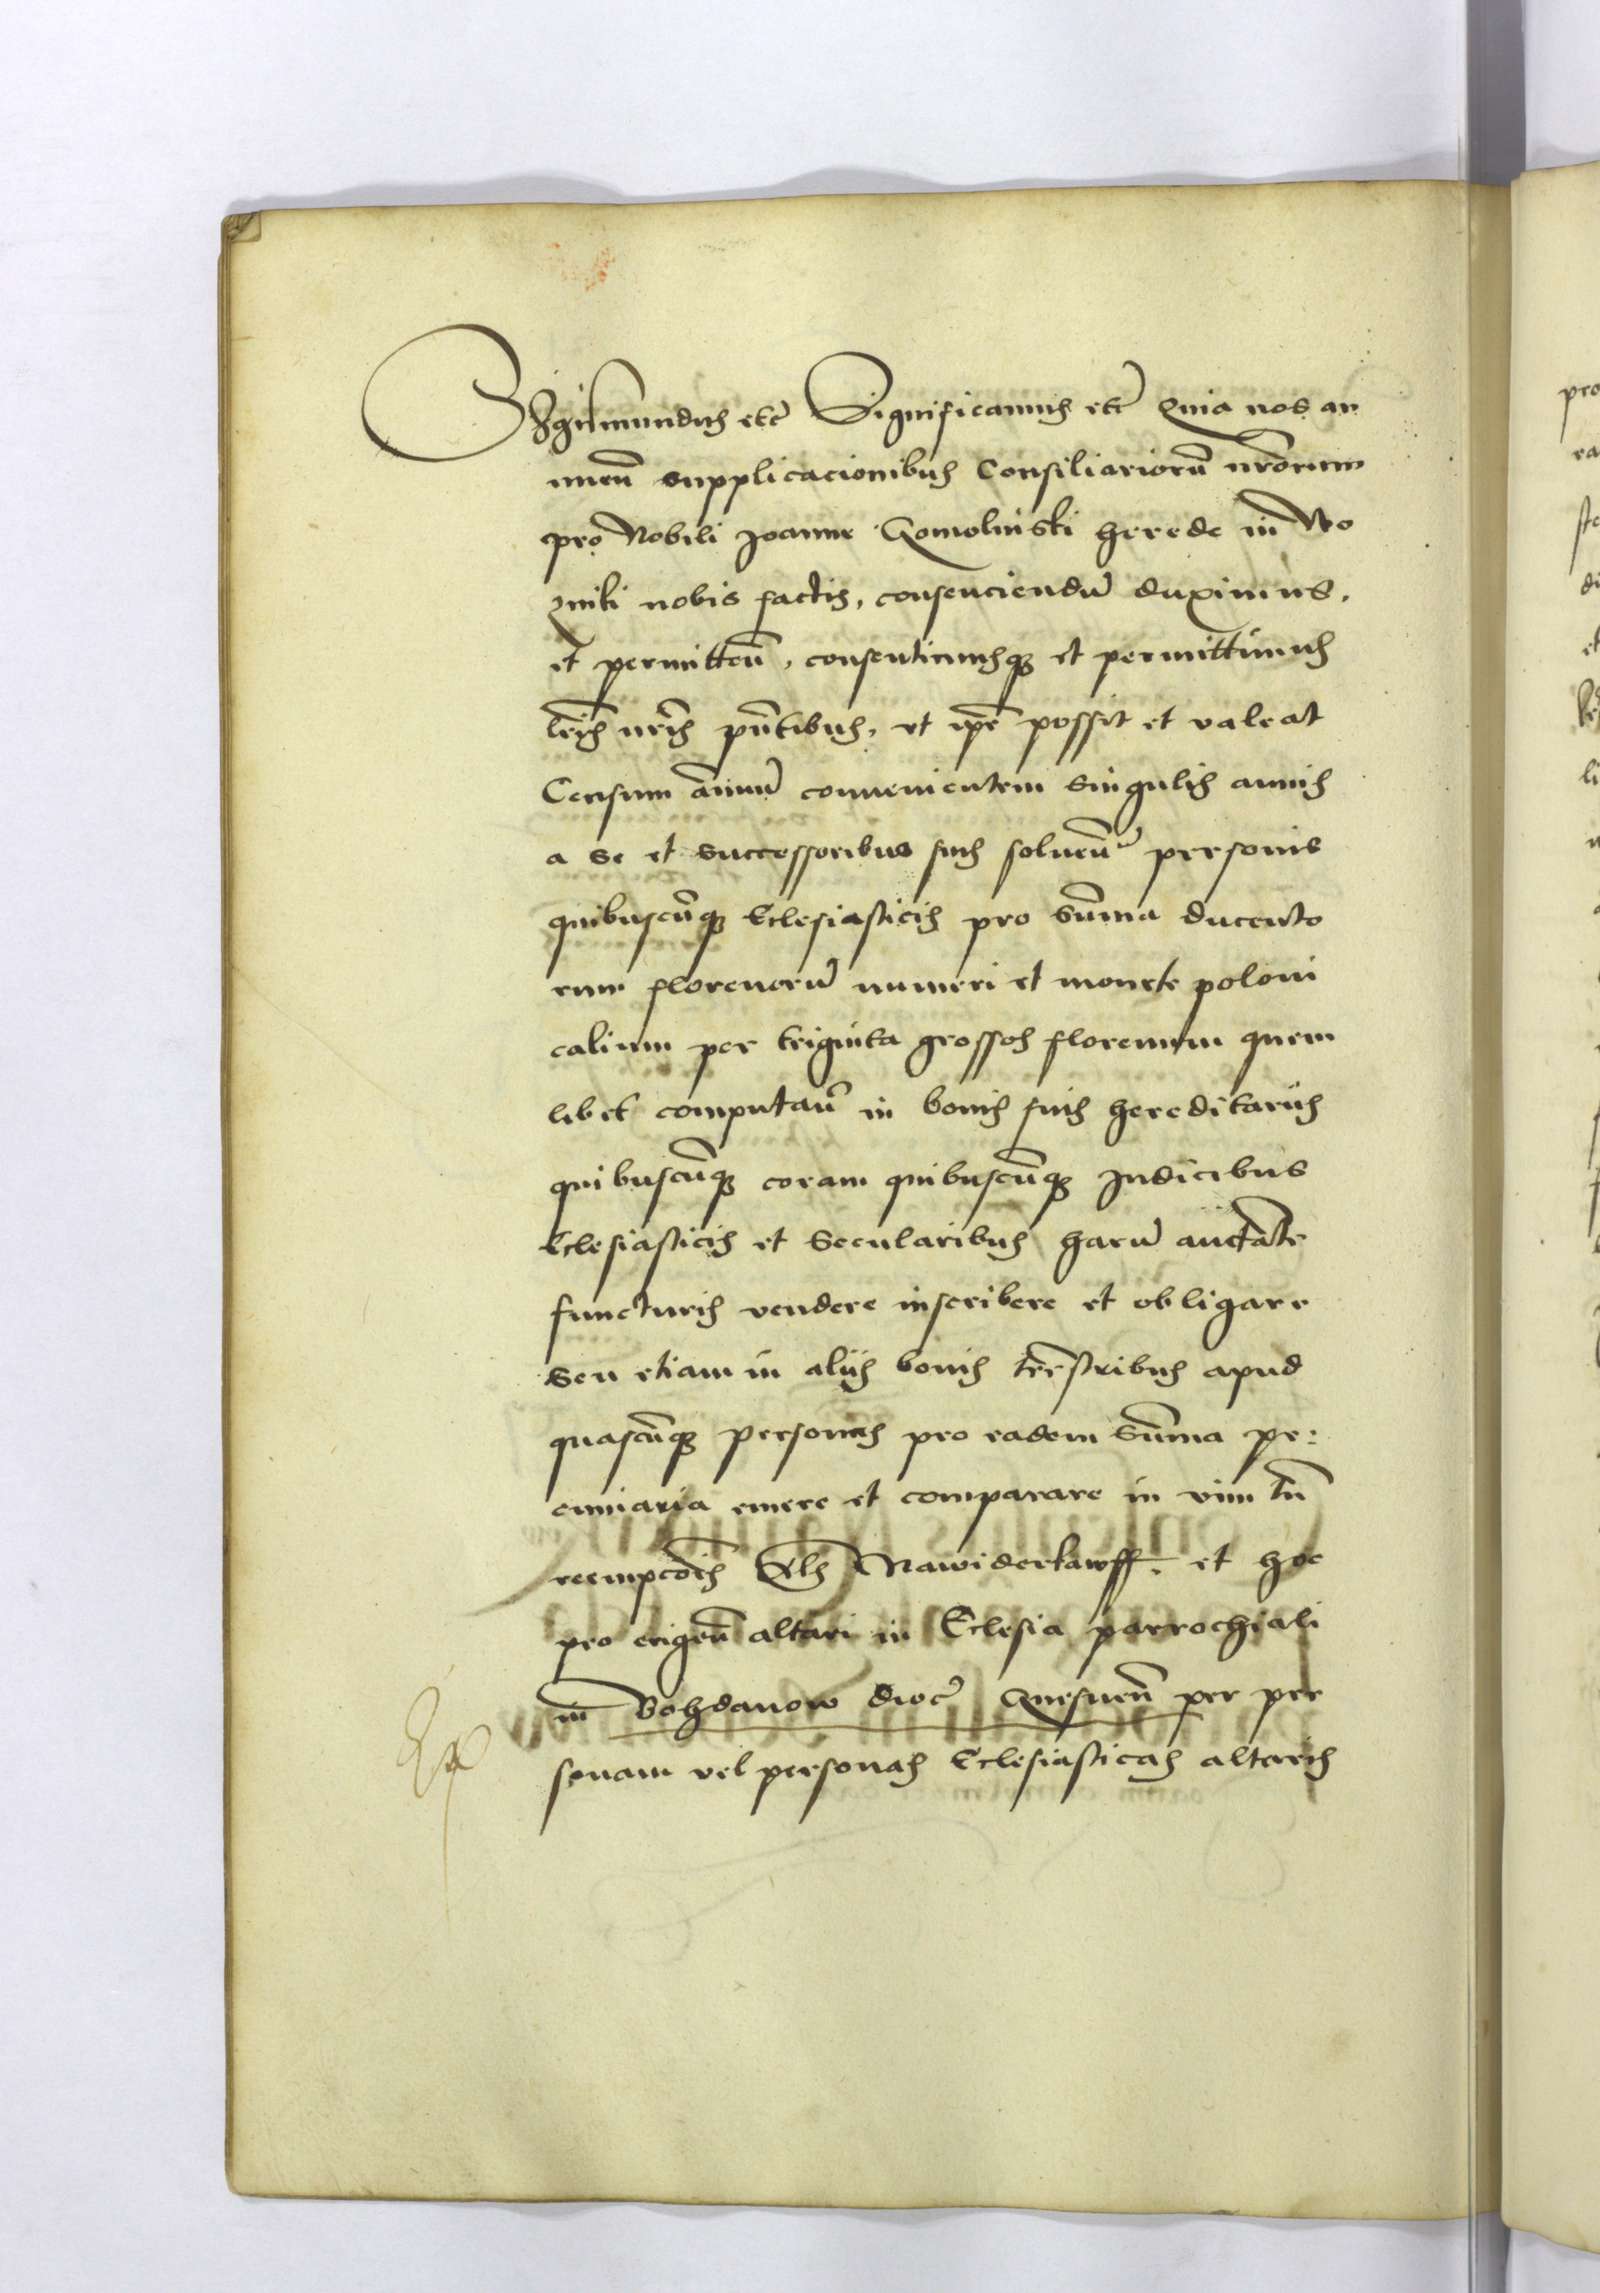 Sigismundus etc̄ Significamus etc̄ Quia nos an
nuen̄ supplicacionibus Consiliariorū nrōrum
pro Nobili Joanne Gomolinski herede in Wo
zniki nobis factis, consenciendū duximus,
et permitten̄, consentimusq3 et permittimus
lrīs nrīs pn̄tibus, ut ipē possit et valeat
Censum ānuū convenientem singulis annis
a se et successoribus suis soluen̄ personis
quibuscūq3 Eclesiasticis pro sūma ducento
rum florenorū numeri et monete poloni
calium per triginta grossos florenum quem
libet computan̄ in bonis suis hereditariis
quibuscūq3 coram quibuscūq3 Judicibus
Eclesiasticis et Secularibus harū auctāte
functuris vendere inscribere et obligare
Seu etiam in alijs bonis trr̄estribus apud
quascūq3 personas pro eadem sūma pe:
cuniaria emere et comparare in vim tn̄
reempcōis Als Nawiderkawff. et hoc
pro erigen̄ altari in Eclesia parrochiali
in Bohdanow dioc̄ Gnesnen̄ per per
sonam vel personas Eclesiasticas altaris
pro
ra